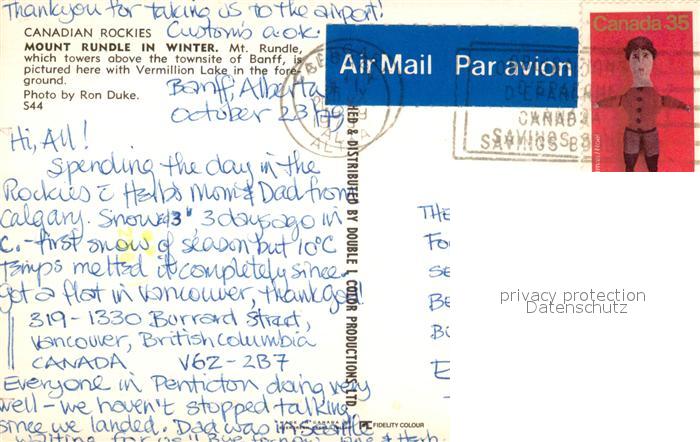 Thankyou for taking us to the airport!
Customs a.ok.
CANADIAN ROCKIES
MOUNT RUNDLE IN WINTER. Mt. Rundle,
which towers above the townsite of Banff, is
pictured here with Vermillion Lake in the fore-
ground.
Photo by Ron Duke.
S44
Air Mail Par avion
Canada 35
CANADA
SAVINGS
Banff, Alberta
October 23/79
Hi, All!
Spending the day in the
Rockies c̄ Herb's Mom & Dad from
Calgary. Snowed 3" 3 days ago in
C. - first snow of season but 10°C
temps melted it completely since.
Got a flat in Vancouver, thank God!
319-1330 Burrard Street,
Vancouver, British Columbia
CANADA V6Z-2B7
Everyone in Penticton doing very
well - we haven't stopped talking
since we landed. Dad was in Seattle
waiting for us" Bye for now,
& DISTRIBUTED BY DOUBLE L COLOR PRODUCTIONS LTD.
FIDELITY COLOUR
THE
privacy protection
Datenschutz